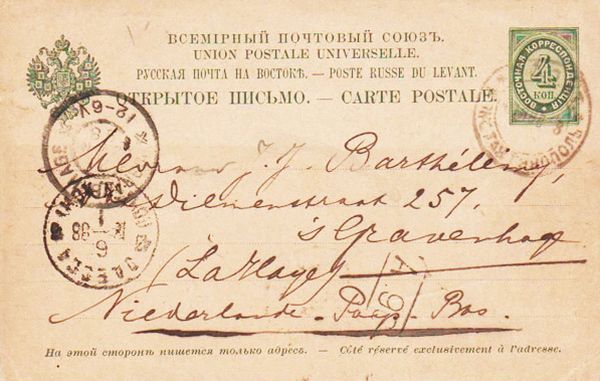 ВСЕМІРНЫЙ ПОЧТОВЫЙ СОЮЗЪ.
UNION POSTALE UNIVERSELLE.
РУССКАЯ ПОЧТА НА ВОСТОКѢ. — POSTE RUSSE DU LEVANT.
ОТКРЫТОЕ ПИСЬМО. — CARTE POSTALE.
ВОСТОЧНАЯ КОРРЕСПОНДЕНЦІЯ
4
КОП.
J. J. Barthélemy,
257,
's Gravenhage
(La Haye)
Niederlande - Pays-Bas.
ОДЕССА
На этой сторонѣ пишется только адресъ. — Côté réservé exclusivement à l'adresse.